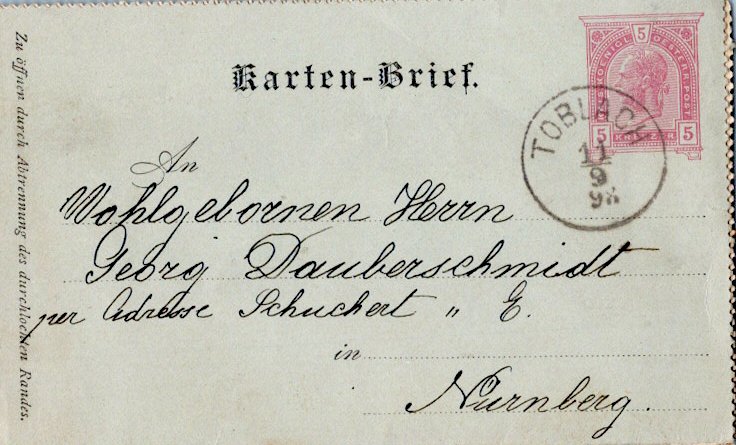 Karten-Brief.
5
KAIS. KOENIGL. OESTERR. POST
5 KREUZER 5
TOBLACH
11
9
98
An
Wohlgebornen Herrn
Georg Dauberschmidt
per Adresse Schuchert " E.
in
Nürnberg.
Zu öffnen durch Abtrennung des durchlochten Randes.